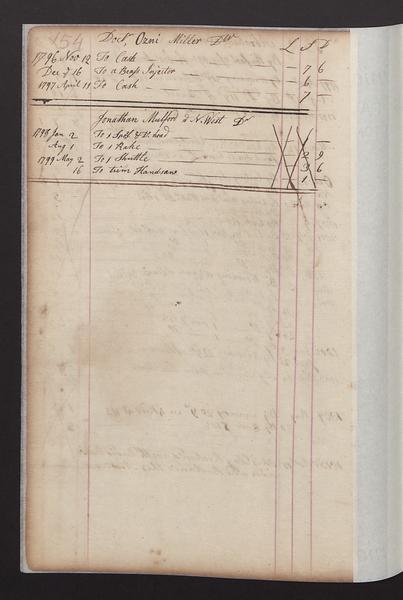 154 Doct, Ozni Miller Dr
£ S D
1796 Nov 12 To Cash — — 7 6
Dec 16 To a Brass Injector — — 6
1797 April 11 To Cash — 7
Jonathan Mulford N. West Dr
1798 Jan 2 To 1
Aug 1 To 1 Rake — 2 9
1799 May 2 To 1 Shuttle — 3 6
16 To trim Handsaw — 1